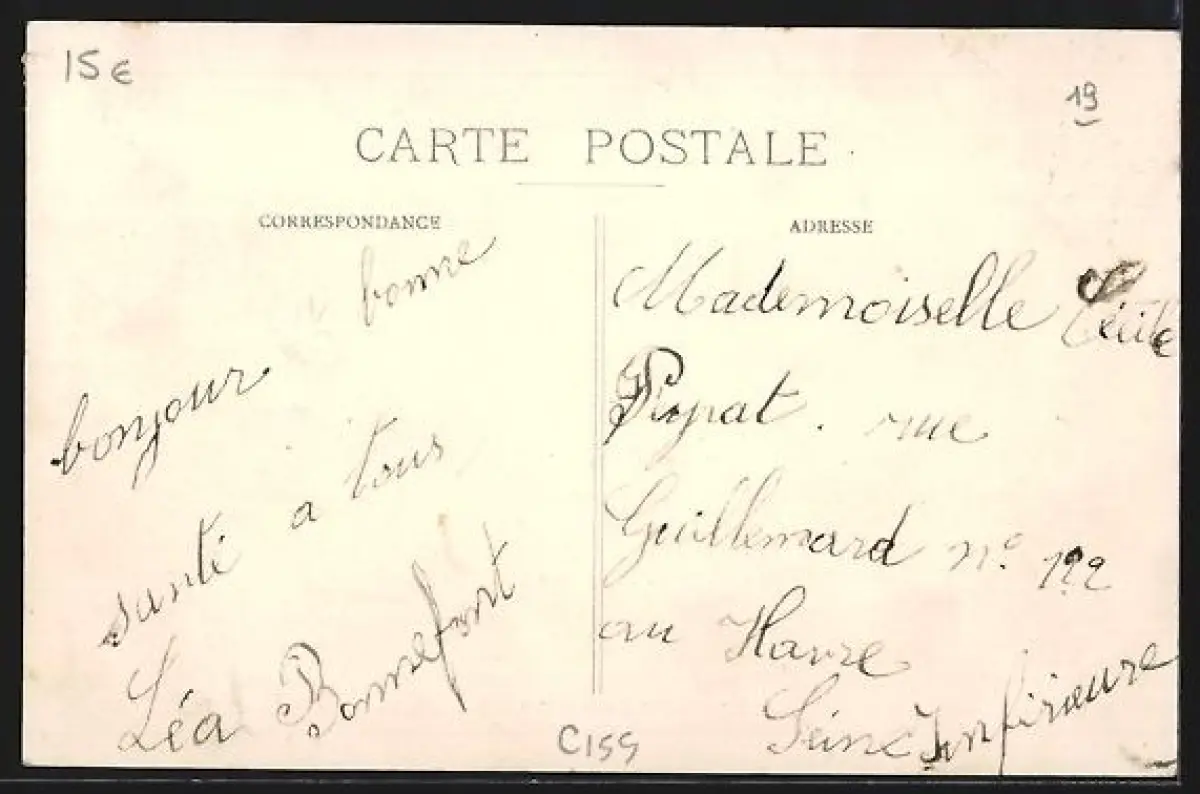 15€
19
CARTE POSTALE
CORRESPONDANCE
bonjour bonne
santé a tous
Léa Bonnefont
ADRESSE
Mademoiselle Cécile
Pupat. rue
Guillemard n° 122
au Havre
Seine Inférieure
C155